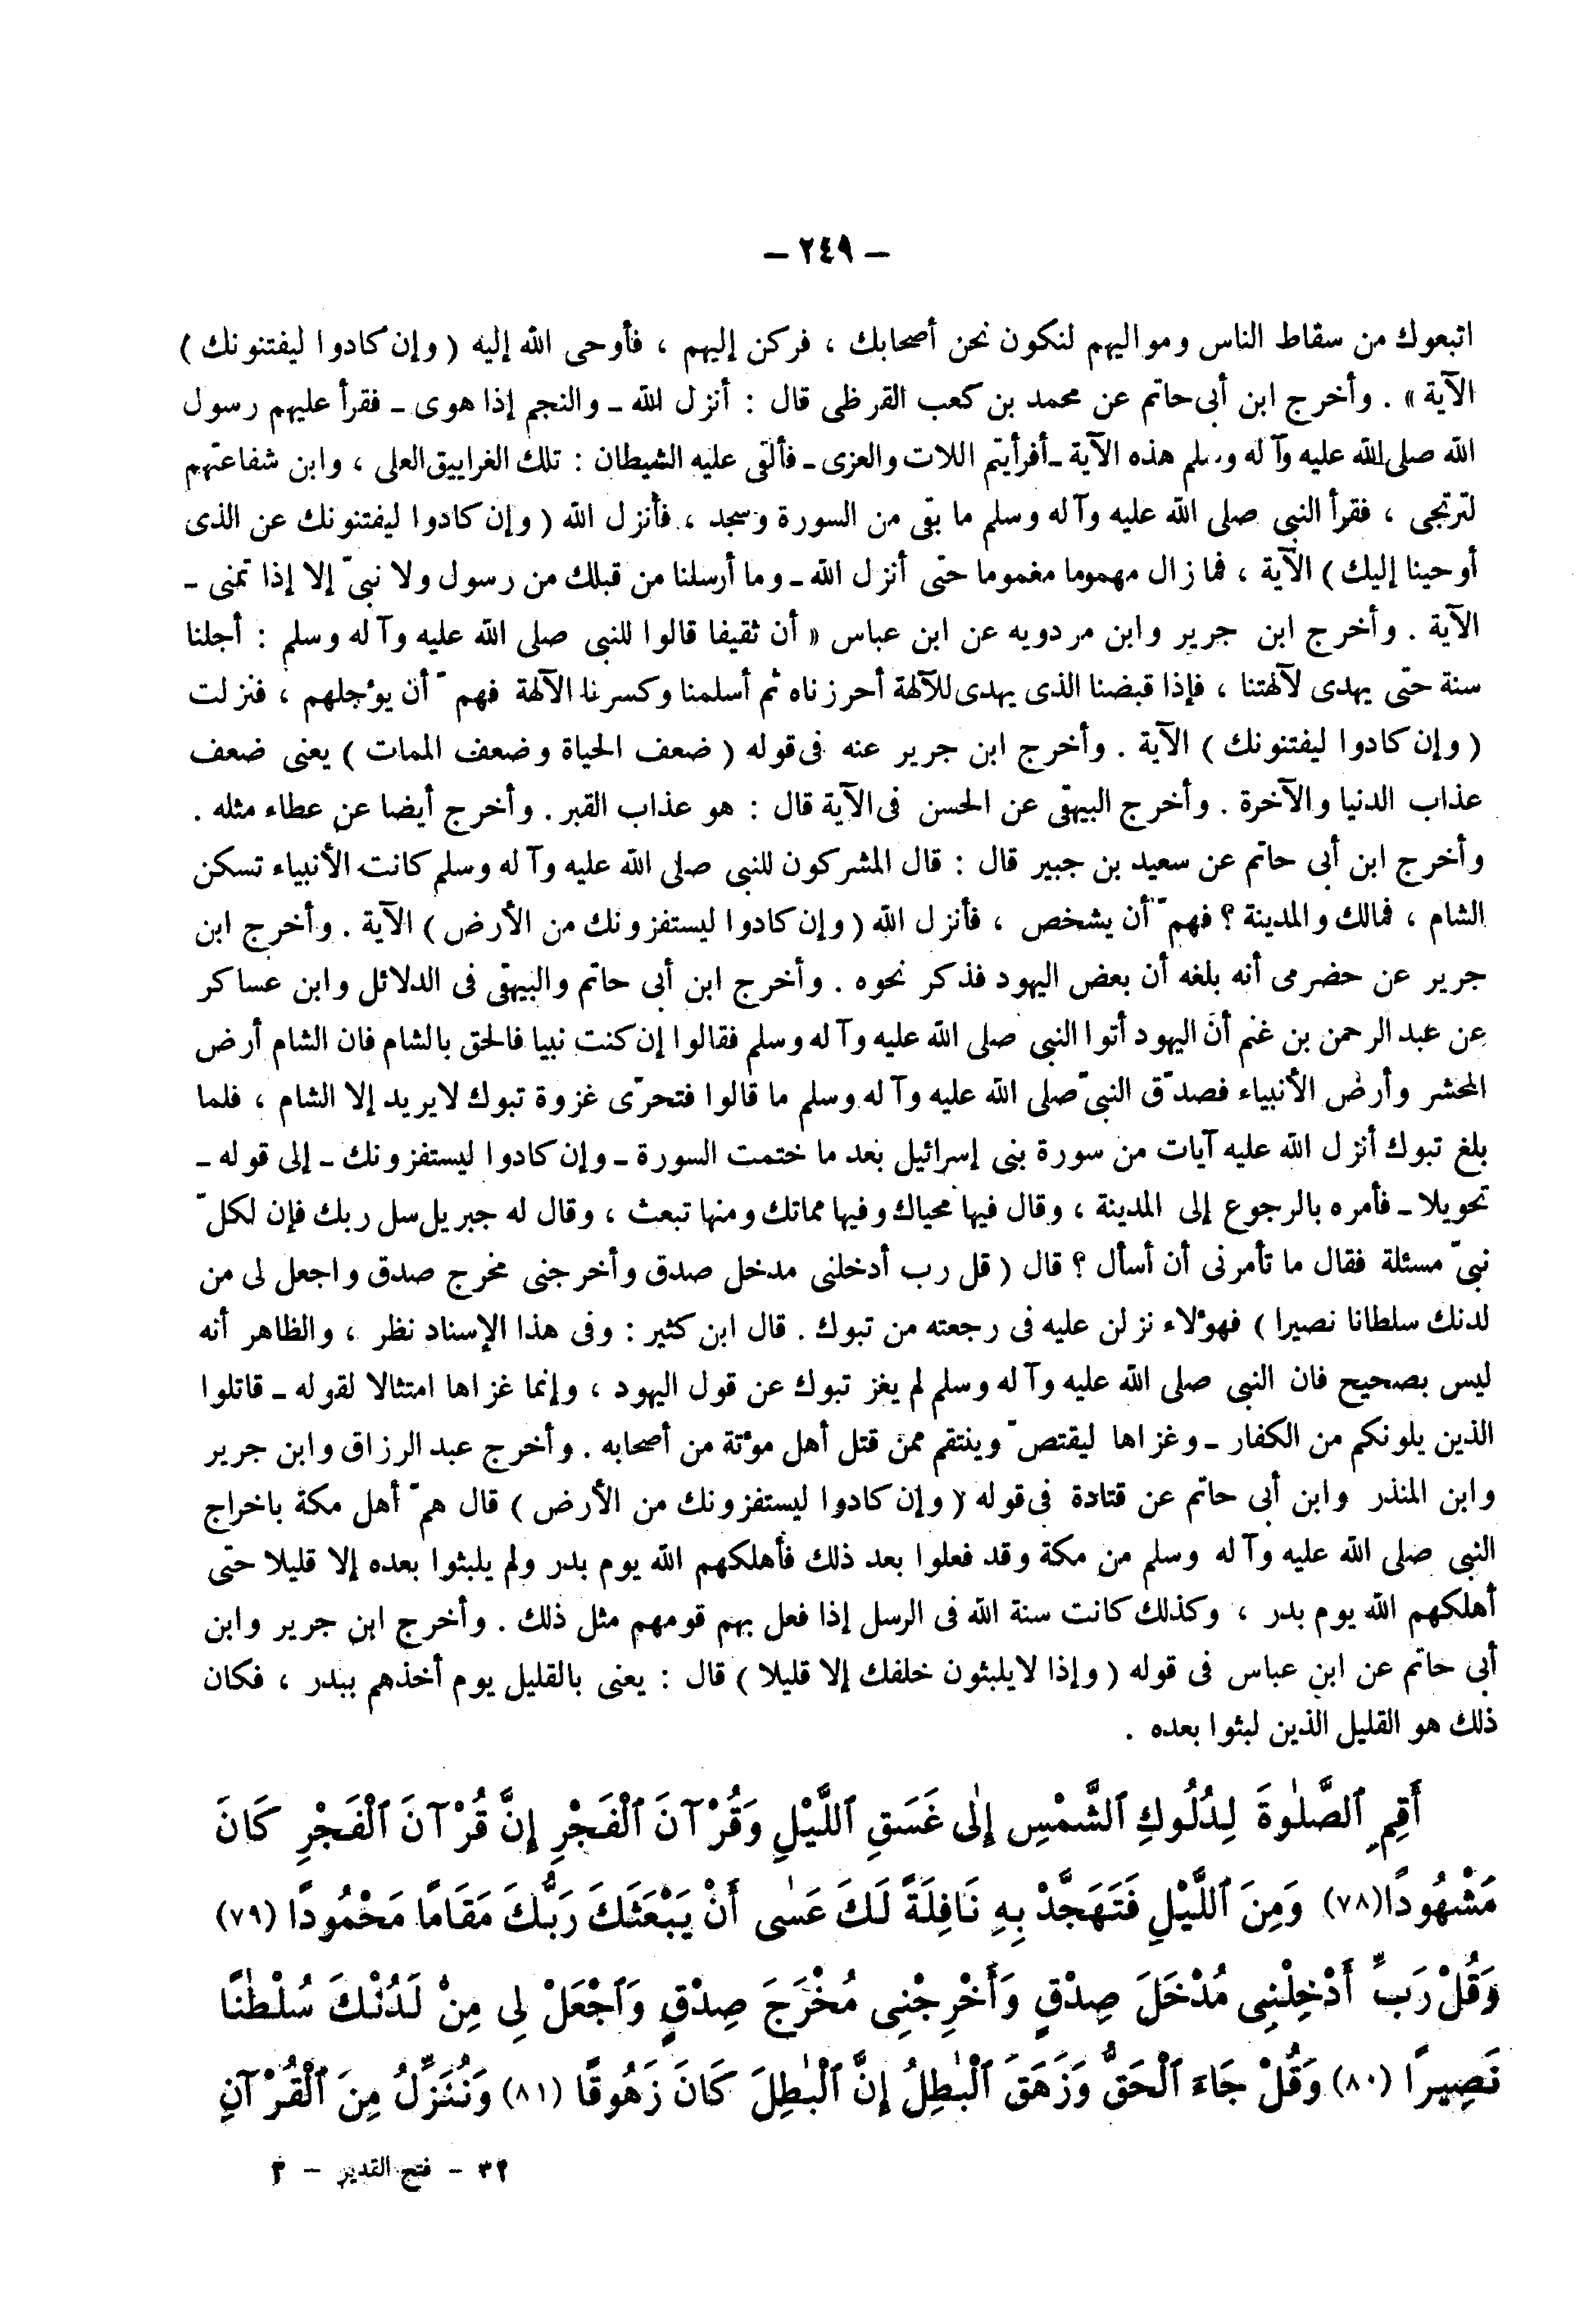 – ٢٤٩ –
اتبعوك من سقاط الناس ومواليهم لنكون نحن أصحابك ، فركن إليهم ، فأوحى الله إليه ( وإن كادوا ليفتنونك )
الآية » . وأخرج ابن أبى حاتم عن محمد بن كعب القرظى قال : أنزل الله ـ والنجم إذا هوى ـ فقرأ عليهم رسول
الله صلى الله عليه وآله وسلم هذه الآية ـ أفرأيتم اللات والعزى ـ فألقى عليه الشيطان : تلك الغرانيق العلى ، وابن شفاعتهم
لترتجى ، فقرأ النبى صلى الله عليه وآله وسلم ما بقى من السورة وسجد ، فأنزل الله ( وإن كادوا ليفتنونك عن الذى
أوحينا إليك ) الآية ، فما زال مهموما مغموما حتى أنزل الله ـ وما أرسلنا من قبلك من رسول ولا نبىّ إلا إذا تمنى ـ
الآية . وأخرج ابن جرير وابن مردويه عن ابن عباس « أن ثقيفا قالوا للنبى صلى الله عليه وآله وسلم : أجلنا
سنة حتى يهدى لآلهتنا ، فإذا قبضنا الذى يهدى للآلهة أحرزناه ثم أسلمنا وكسرنا الآلهة فهمّ أن يؤجلهم ، فنزلت
( وإن كادوا ليفتنونك ) الآية . وأخرج ابن جرير عنه فى قوله ( ضعف الحياة وضعف الممات ) يعنى ضعف
عذاب الدنيا والآخرة . وأخرج البيهقى عن الحسن فى الآية قال : هو عذاب القبر . وأخرج أيضا عن عطاء مثله .
وأخرج ابن أبى حاتم عن سعيد بن جبير قال : قال المشركون للنبى صلى الله عليه وآله وسلم كانت الأنبياء تسكن
الشام ، فمالك والمدينة ؟ فهمّ أن يشخص ، فأنزل الله ( وإن كادوا ليستفزونك من الأرض ) الآية . وأخرج ابن
جرير عن حضرمى أنه بلغه أن بعض اليهود فذكر نحوه . وأخرج ابن أبى حاتم والبيهقى فى الدلائل وابن عساكر
عن عبد الرحمن بن غنم أن اليهود أتوا النبى صلى الله عليه وآله وسلم فقالوا إن كنت نبيا فالحق بالشام فان الشام أرض
المحشر وأرض الأنبياء فصدّق النبىّ صلى الله عليه وآله وسلم ما قالوا فتحرّى غزوة تبوك لايريد إلا الشام ، فلما
بلغ تبوك أنزل الله عليه آيات من سورة بنى إسرائيل بعد ما ختمت السورة ـ وإن كادوا ليستفزونك ـ إلى قوله ـ
تحويلا ـ فأمره بالرجوع إلى المدينة ، وقال فيها محياك وفيها مماتك ومنها تبعث ، وقال له جبريل سل ربك فإن لكلّ
نبىّ مسئلة فقال ما تأمرنى أن أسأل ؟ قال ( قل رب أدخلنى مدخل صدق وأخرجنى مخرج صدق واجعل لى من
لدنك سلطانا نصيرا ) فهؤلاء نزلن عليه فى رجعته من تبوك . قال ابن كثير : وفى هذا الإسناد نظر ، والظاهر أنه
ليس بصحيح فان النبى صلى الله عليه وآله وسلم لم يغز تبوك عن قول اليهود ، وإنما غزاها امتثالا لقوله ـ قاتلوا
الذين يلونكم من الكفار ـ وغزاها ليقتصّ وينتقم ممن قتل أهل مؤتة من أصحابه . وأخرج عبد الرزاق وابن جرير
وابن المنذر وابن أبى حاتم عن قتادة فى قوله ( وإن كادوا ليستفزونك من الأرض ) قال همّ أهل مكة باخراج
النبى صلى الله عليه وآله وسلم من مكة وقد فعلوا بعد ذلك فأهلكهم الله يوم بدر ولم يلبثوا بعده إلا قليلا حتى
أهلكهم الله يوم بدر ، وكذلك كانت سنة الله فى الرسل إذا فعل بهم قومهم مثل ذلك . وأخرج ابن جرير وابن
أبى حاتم عن ابن عباس فى قوله ( وإذا لايلبثون خلفك إلا قليلا ) قال : يعنى بالقليل يوم أخذهم ببدر ، فكان
ذلك هو القليل الذين لبثوا بعده .
أَقِمِ ٱلصَّلَوٰةَ لِدُلُوكِ ٱلشَّمْسِ إِلَىٰ غَسَقِ ٱللَّيْلِ وَقُرْآنَ ٱلْفَجْرِ إِنَّ قُرْآنَ ٱلْفَجْرِ كَانَ
مَشْهُودًا (٧٨) وَمِنَ ٱللَّيْلِ فَتَهَجَّدْ بِهِ نَافِلَةً لَكَ عَسَىٰ أَنْ يَبْعَثَكَ رَبُّكَ مَقَامًا مَحْمُودًا (٧٩)
وَقُلْ رَبِّ أَدْخِلْنِى مُدْخَلَ صِدْقٍ وَأَخْرِجْنِى مُخْرَجَ صِدْقٍ وَٱجْعَلْ لِى مِنْ لَدُنْكَ سُلْطَٰنًا
نَصِيرًا (٨٠) وَقُلْ جَاءَ ٱلْحَقُّ وَزَهَقَ ٱلْبَٰطِلُ إِنَّ ٱلْبَٰطِلَ كَانَ زَهُوقًا (٨١) وَنُنَزِّلُ مِنَ ٱلْقُرْآنِ
٣٢ – فتح القدير – ٣